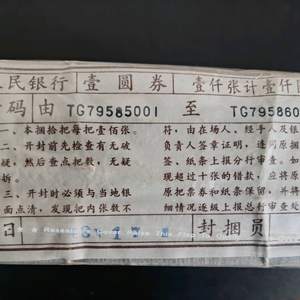 人民银行 壹圆券 壹仟张计壹仟
码 由 TG79585001 至 TG795860
一、本捆拾把每把壹佰张。
二、开封前先检查有无破
疑，然后重点把数，无疑
拆。
三、开封时必须与当地银
面点清，发现把内张数不
符，由在场人、经手人及银
负责人签章证明，连同原捆
签、纸条上报分行审查。如
现超过十张的错款，应将原
原把票券和纸条保留，并将
细情况逐级上报总行审查处
日
封捆员